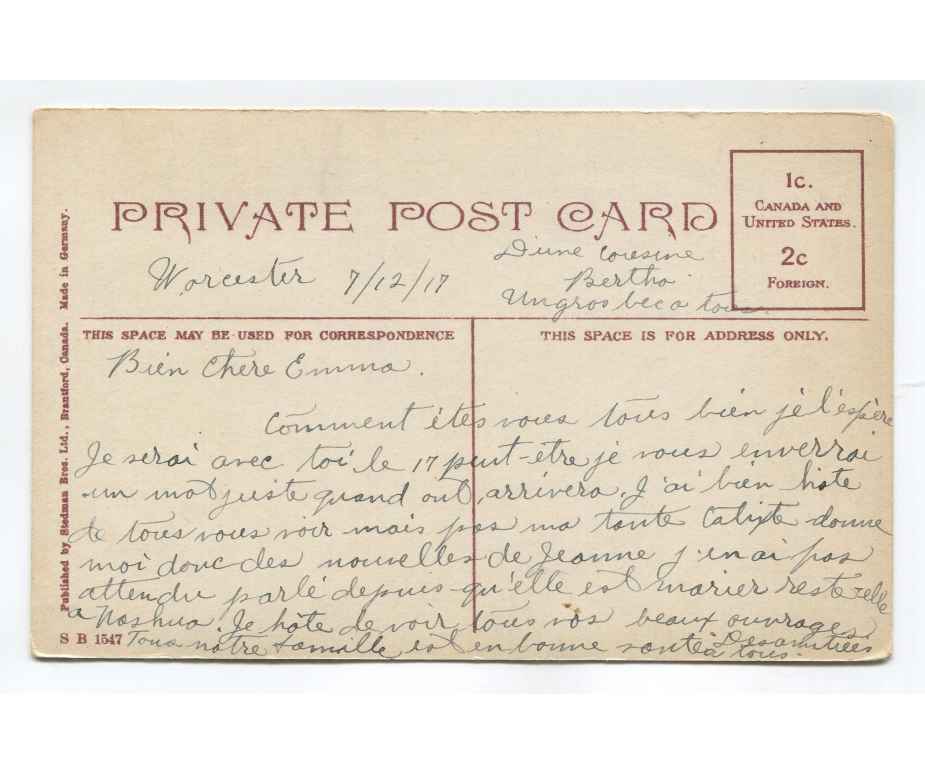 PRIVATE POST CARD
1c.
CANADA AND
UNITED STATES.
2c
FOREIGN.
Worcester 7/12/17
D'une cousine
Bertha
Un gros bec a tous.
THIS SPACE MAY BE USED FOR CORRESPONDENCE
THIS SPACE IS FOR ADDRESS ONLY.
Bien Chere Emma.
Comment êtes vous tous bien jé l'espère
Je serai avec toi le 17 peut-être je vous enverrai
un mot juste quand ont arrivera. J'ai bien hate
de tous vous voir mais pas ma tante Calixte donne
moi donc des nouvelles de Jeanne j'en ai pas
attendu parlé depuis qu'elle est marier reste-elle
a Nashua. Je hâte de voir tous vos beaux ouvrages
Tous notre famille est en bonne santé Des amitiées
a tous.
Published by Stedman Bros. Ltd., Brantford, Canada. Made in Germany.
S B 1547